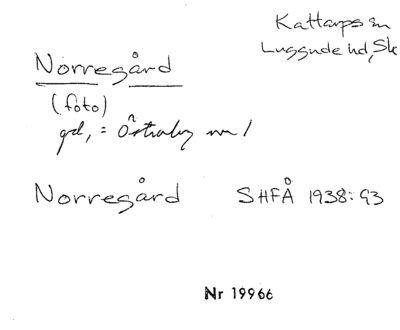 Kattarps sn
Luggude hd, Sk
Norregård
(foto)
gd, = Östraby nr 1
Norregård SHFÅ 1938:93
Nr 19966